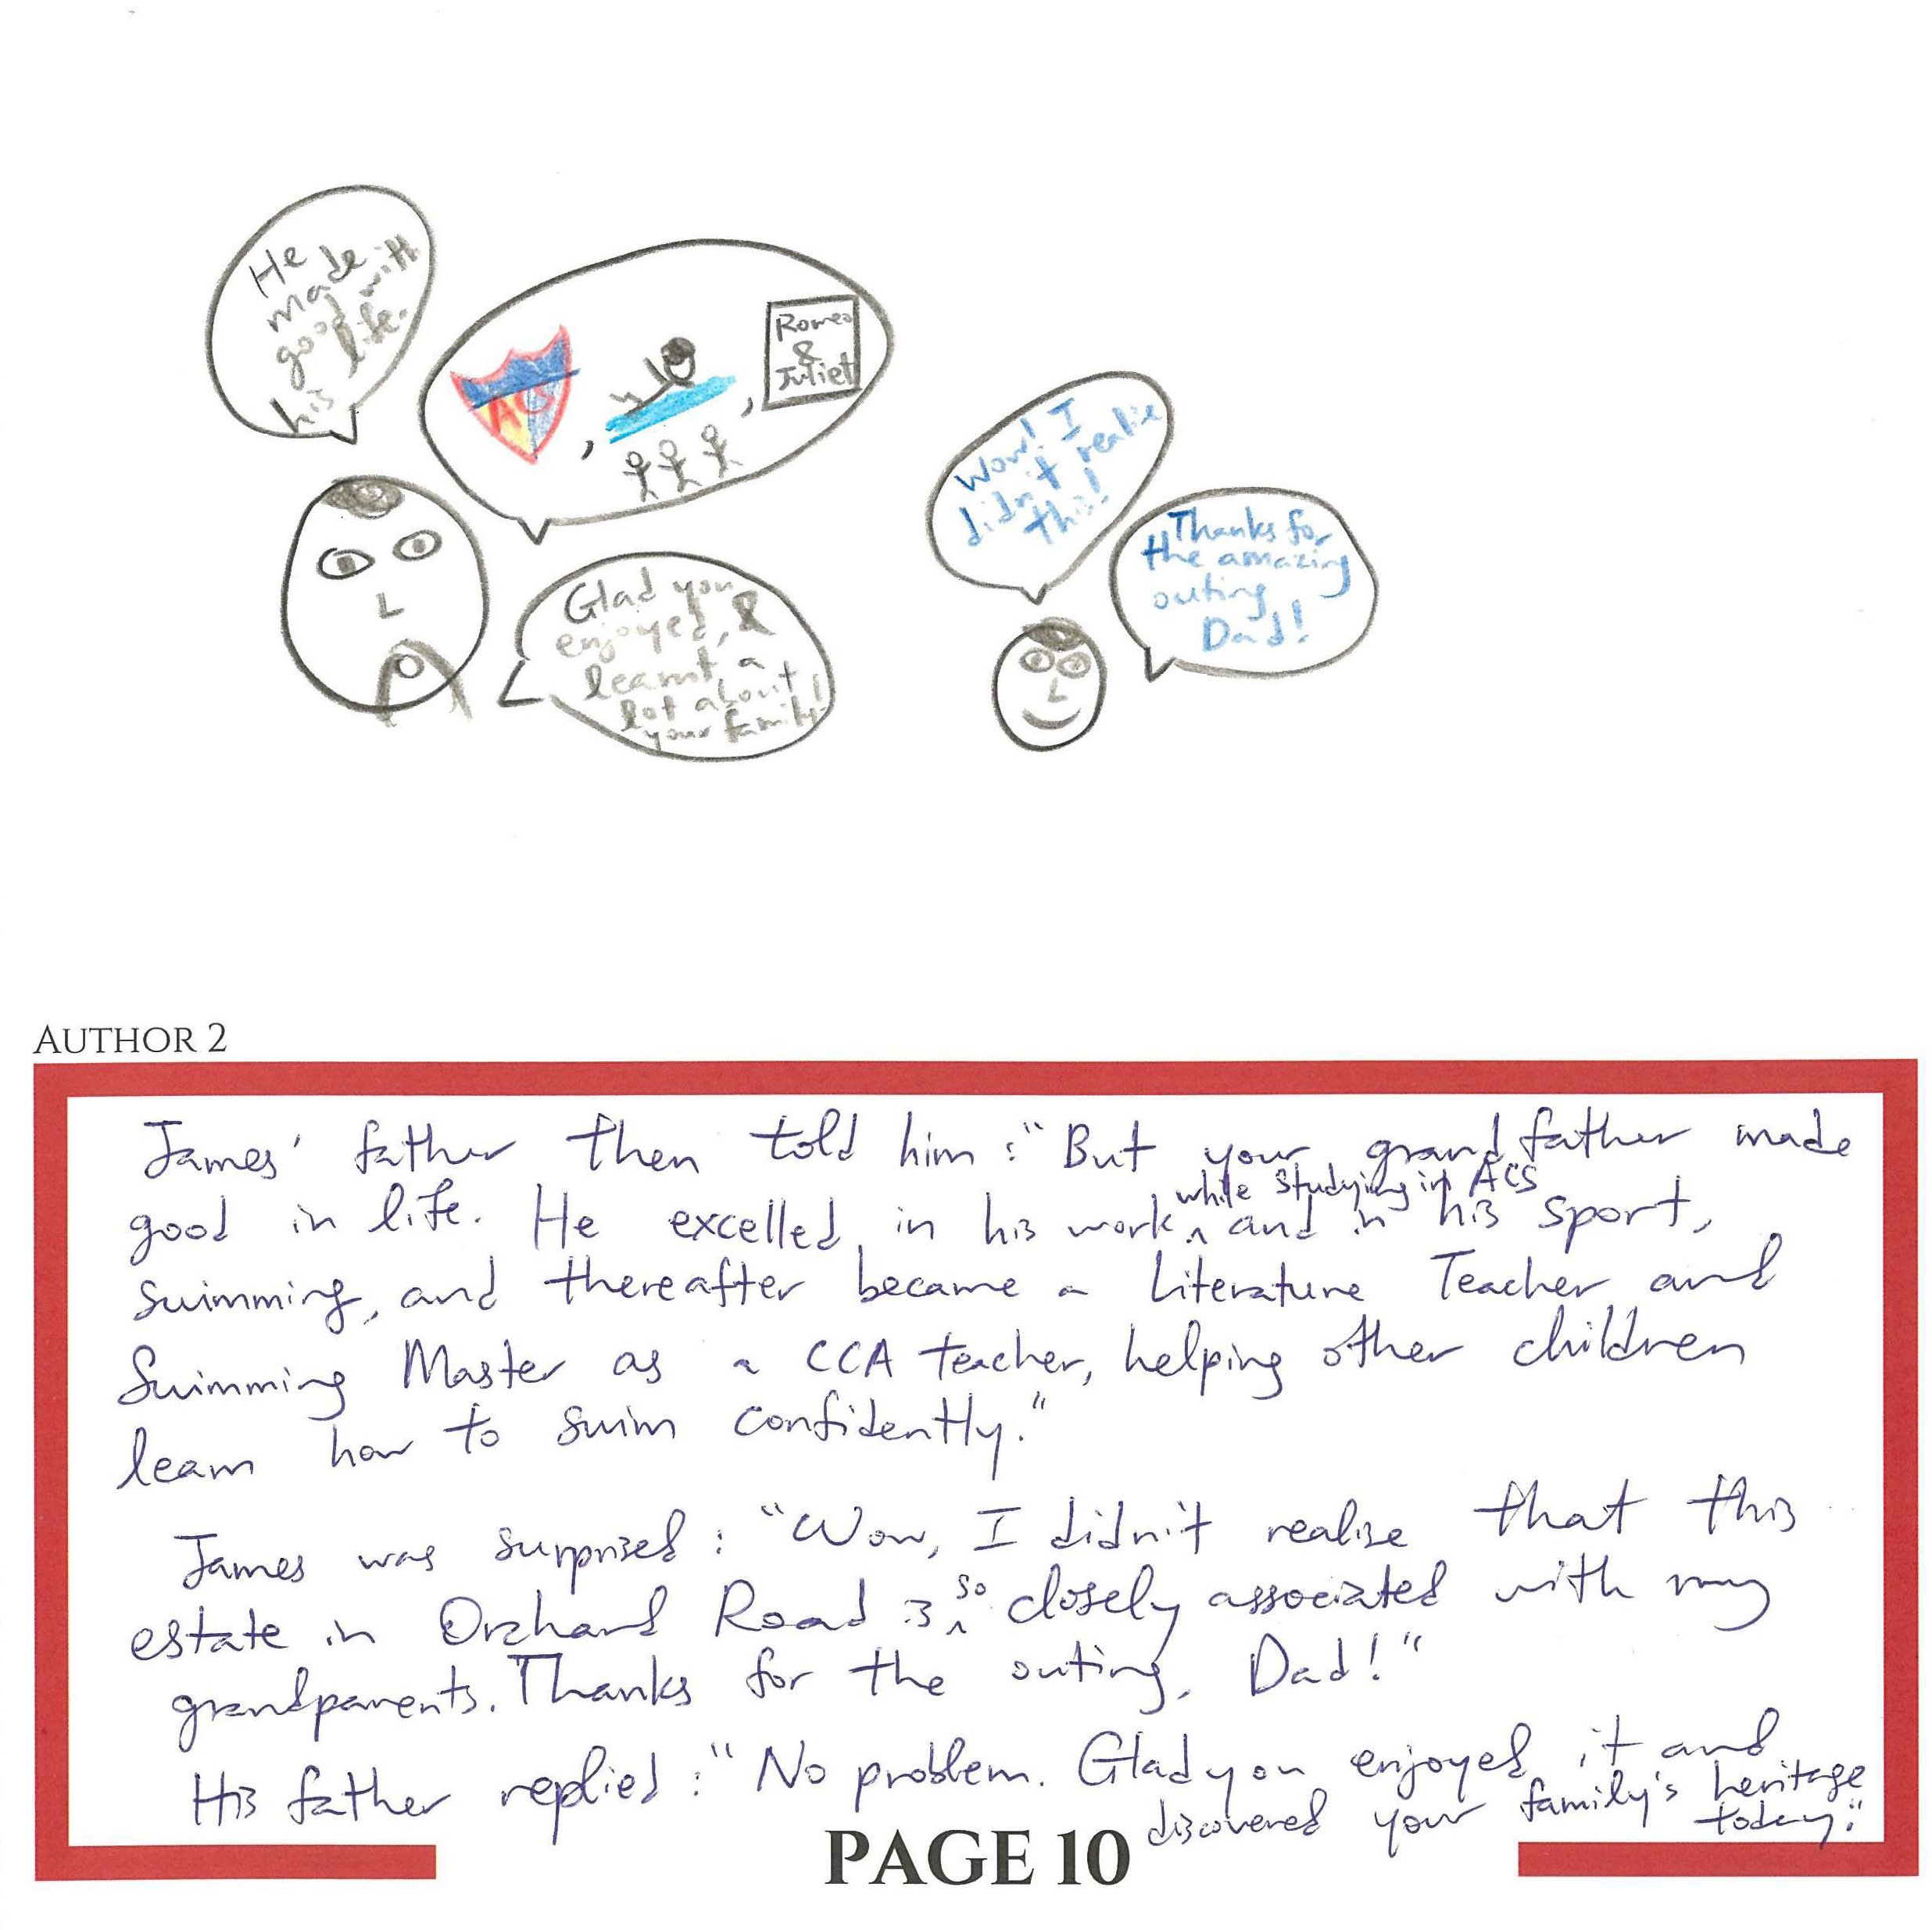 He
made
good with
his life.
ACS
,
,
Romeo
&
Juliet
Glad you
enjoyed, &
learnt a
lot about
your family!
Wow! I
didn't realise
this!
Thanks for
the amazing
outing
Dad!
AUTHOR 2
James' father then told him : "But your grandfather made
good in life. He excelled in his work while studying in ACS and in his sport,
swimming, and thereafter became a Literature Teacher and
Swimming Master as a CCA teacher, helping other children
learn how to swim confidently."
James was surprised : "Wow, I didn't realise that this
estate in Orchard Road is so closely associated with my
grandparents. Thanks for the outing, Dad!"
His father replied : "No problem. Glad you enjoyed it and
discovered your family's heritage
today."
PAGE 10